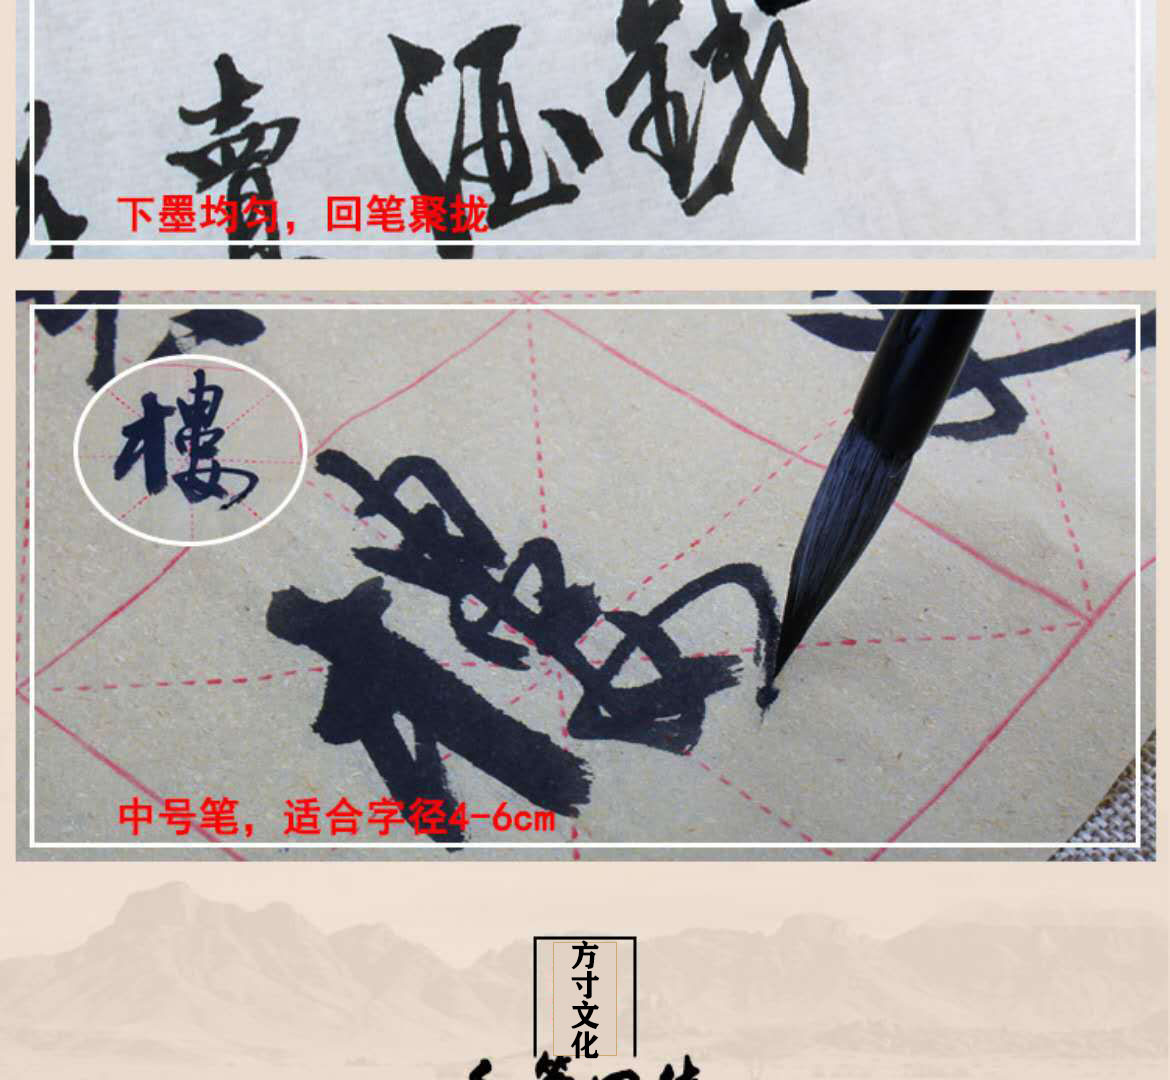 賣酒錢
下墨均匀，回笔聚拢
樓
樓
中号笔，适合字径4-6cm
方寸文化